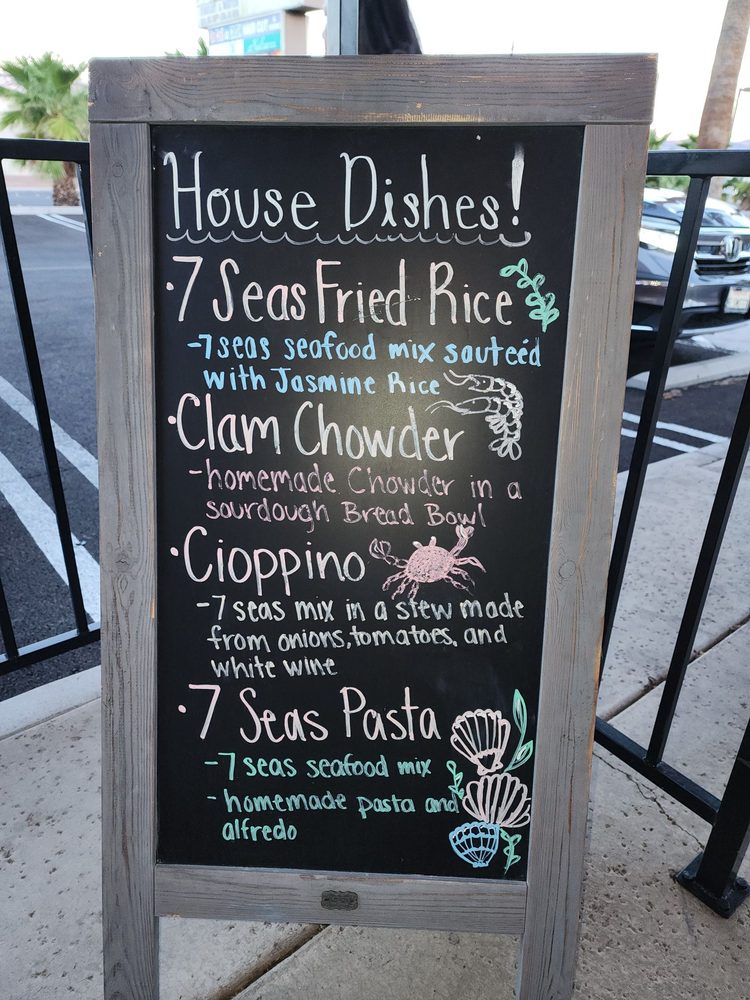 House Dishes!
·7 Seas Fried Rice
-7 seas seafood mix sauteéd
with Jasmine Rice
·Clam Chowder
-homemade Chowder in a
sourdough Bread Bowl
·Cioppino
-7 seas mix in a stew made
from onions, tomatoes, and
white wine
·7 Seas Pasta
-7 seas seafood mix
-homemade pasta and
alfredo